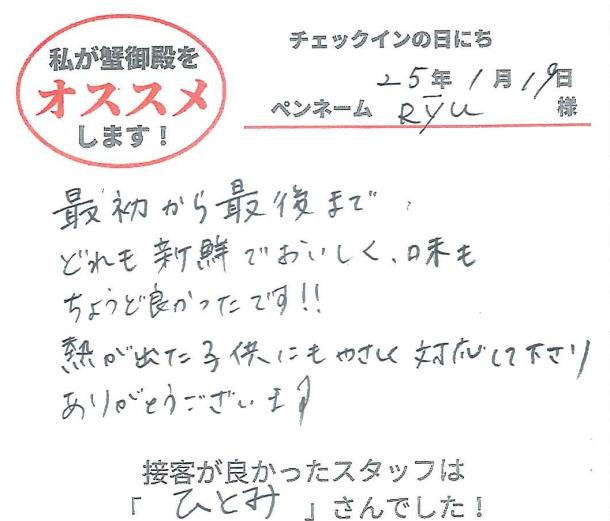 私が蟹御殿を
オススメ
します!
チェックインの日にち
25年1月19日
ペンネーム Ryu 様
最初から最後まで
どれも新鮮でおいしく、味も
ちょうど良かったです!!
熱が出た子供にもやさしく対応して下さり
ありがとうございます
接客が良かったスタッフは
「 ひとみ 」さんでした!